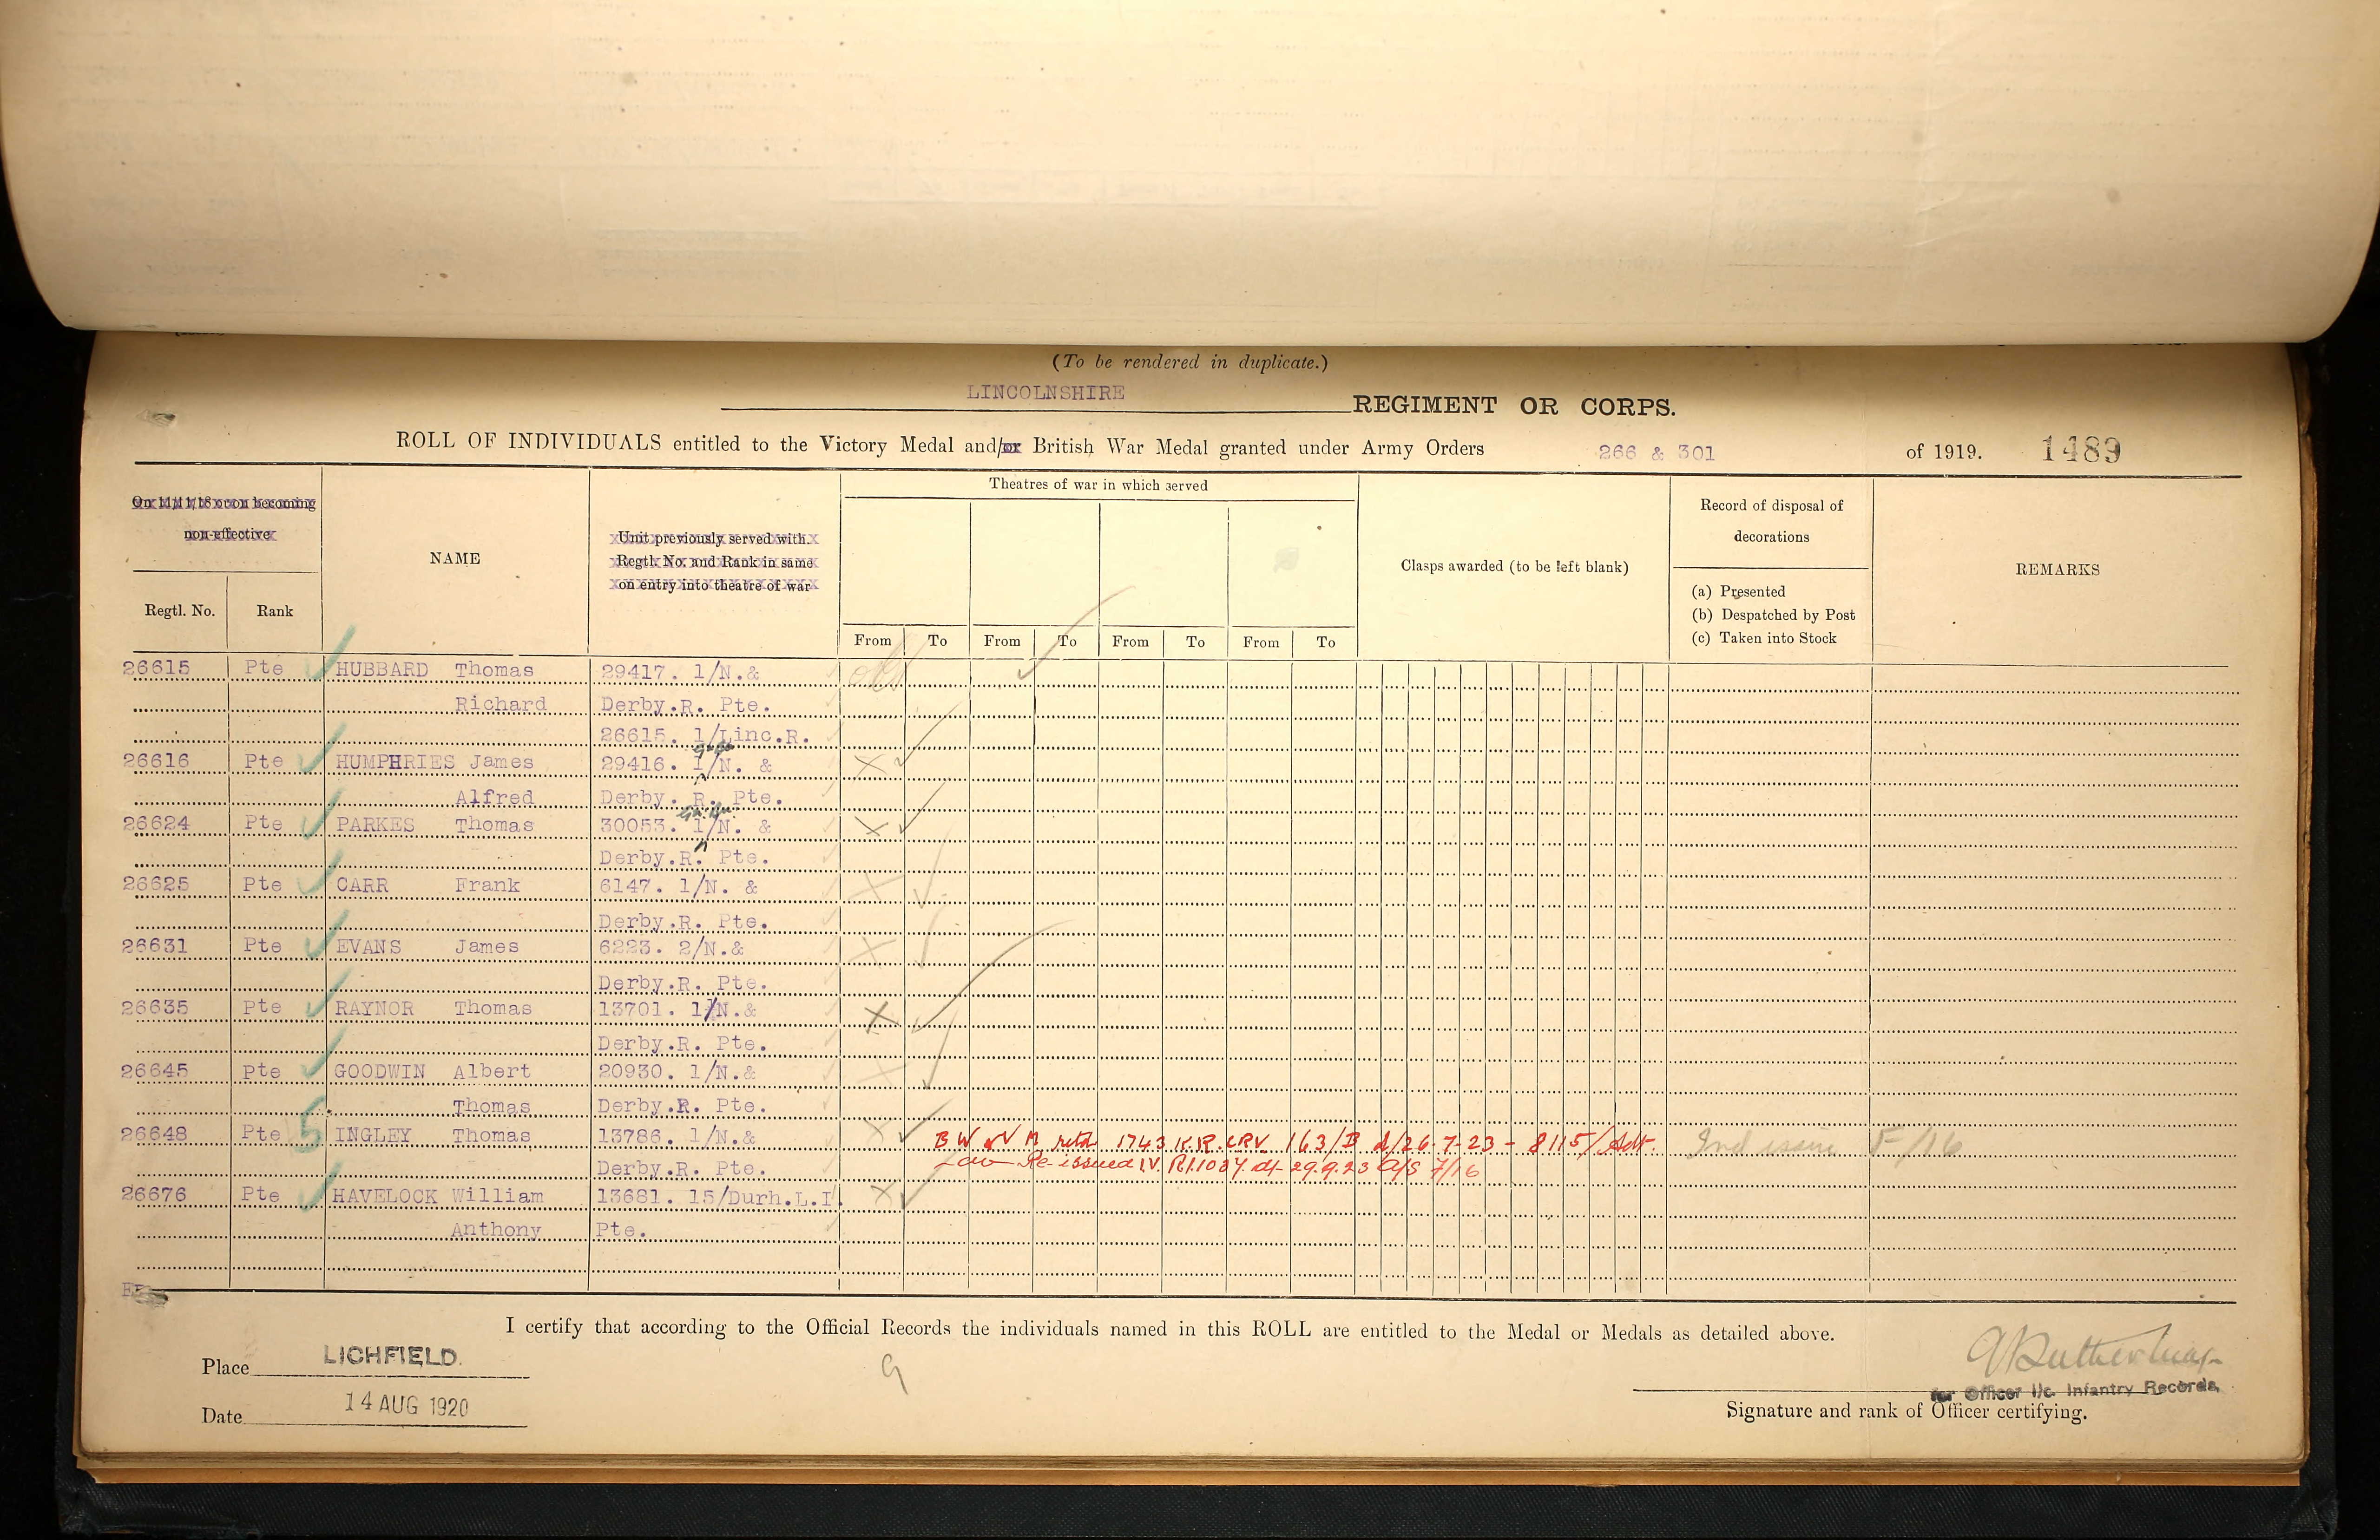 (To be rendered in duplicate.)
LINCOLNSHIRE REGIMENT OR CORPS.
ROLL OF INDIVIDUALS entitled to the Victory Medal and/or British War Medal granted under Army Orders 266 & 301 of 1919. 1489
On 11/11/18 or on becoming non-effective
Regtl. No. Rank
NAME
Unit previously served with.
Regtl. No. and Rank in same
on entry into theatre of war
Theatres of war in which served
From To From To From To From To
Clasps awarded (to be left blank)
Record of disposal of
decorations
(a) Presented
(b) Despatched by Post
(c) Taken into Stock
REMARKS
26615 Pte HUBBARD Thomas 29417. 1/N.&
Richard Derby.R. Pte.
26615. 1/Linc.R.
26616 Pte HUMPHRIES James 29416. 1/N. & X
Alfred Derby. R. Pte.
26624 Pte PARKES Thomas 30053. 1/N. & X
Derby.R. Pte.
26625 Pte CARR Frank 6147. 1/N. & X
Derby.R. Pte.
26631 Pte EVANS James 6223. 2/N.& X
Derby.R. Pte.
26635 Pte RAYNOR Thomas 13701. 1/N.& X
Derby.R. Pte.
26645 Pte GOODWIN Albert 20930. 1/N.& X
Thomas Derby.R. Pte.
26648 Pte 5 INGLEY Thomas 13786. 1/N.& X B W & V M retd 1743 K.R. 163/B d/26-7-23 - 8115/Adt. Ind issue F/16
Derby.R. Pte. -do- Re-issued I.V. d/- 29.9.23 7/16
26676 Pte HAVELOCK William 13681. 15/Durh.L.I. X
Anthony Pte.
I certify that according to the Official Records the individuals named in this ROLL are entitled to the Medal or Medals as detailed above.
Place LICHFIELD.
Date 14 AUG 1920
9
for Officer i/c. Infantry Records,
Signature and rank of Officer certifying.